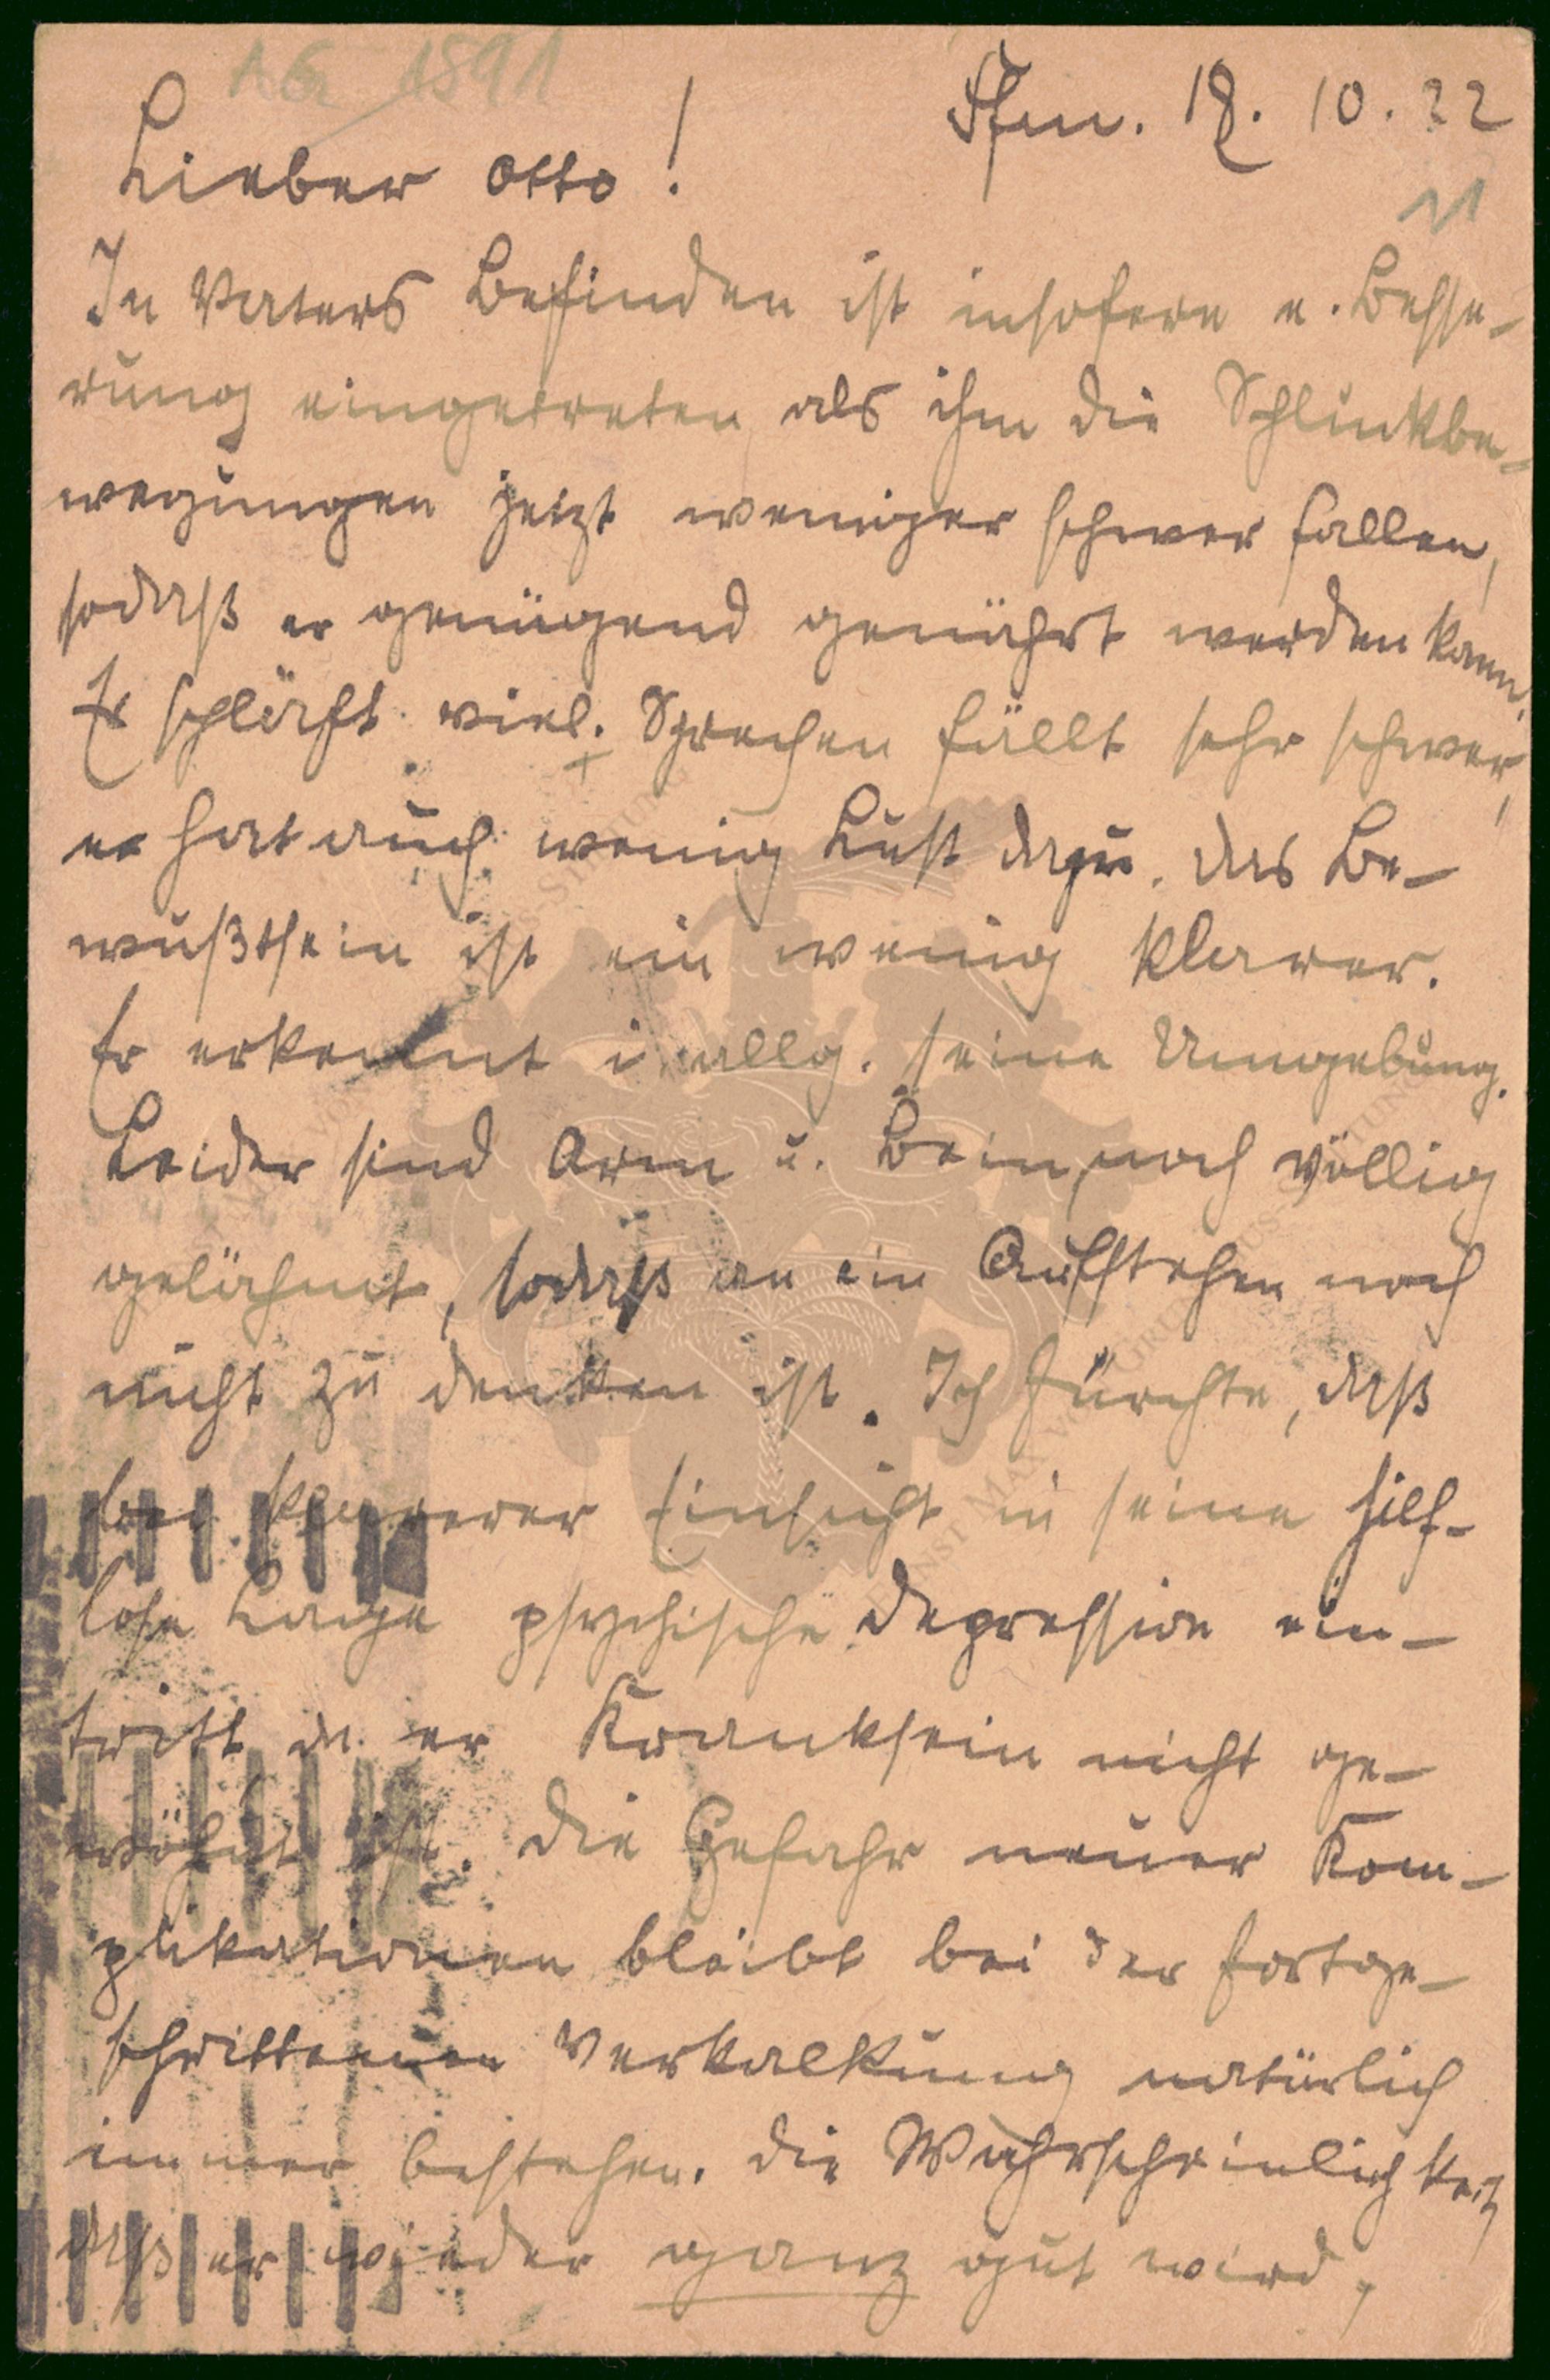 AG 1591
Lieber Otto! 18. 10. 22
11
In Vaters Befinden ist insofern e. Besse-
rung eingetreten, als ihm die Schluckbe-
wegungen jetzt weniger schwer fallen,
sodaß er genügend genährt werden kann.
Er schläft viel. Sprechen fällt sehr schwer,
er hat auch wenig Lust dazu. Das Be-
wußtsein ist ein wenig klarer.
Er erkennt i. allg. seine Umgebung.
Leider sind Arm u. Bein noch völlig
gelähmt, sodaß an ein Aufstehen noch
nicht zu denken ist. Ich fürchte, daß
bei klarerer Einsicht in seine hilf-
lose Lage psychische Depression ein-
tritt, da er Kranksein nicht ge-
wöhnt ist. Die Gefahr neuer Kom-
plikationen bleibt bei der fortge-
schrittenen Verkalkung natürlich
immer bestehen. Die Wahrscheinlichkeit,
daß er wieder ganz gut wird,